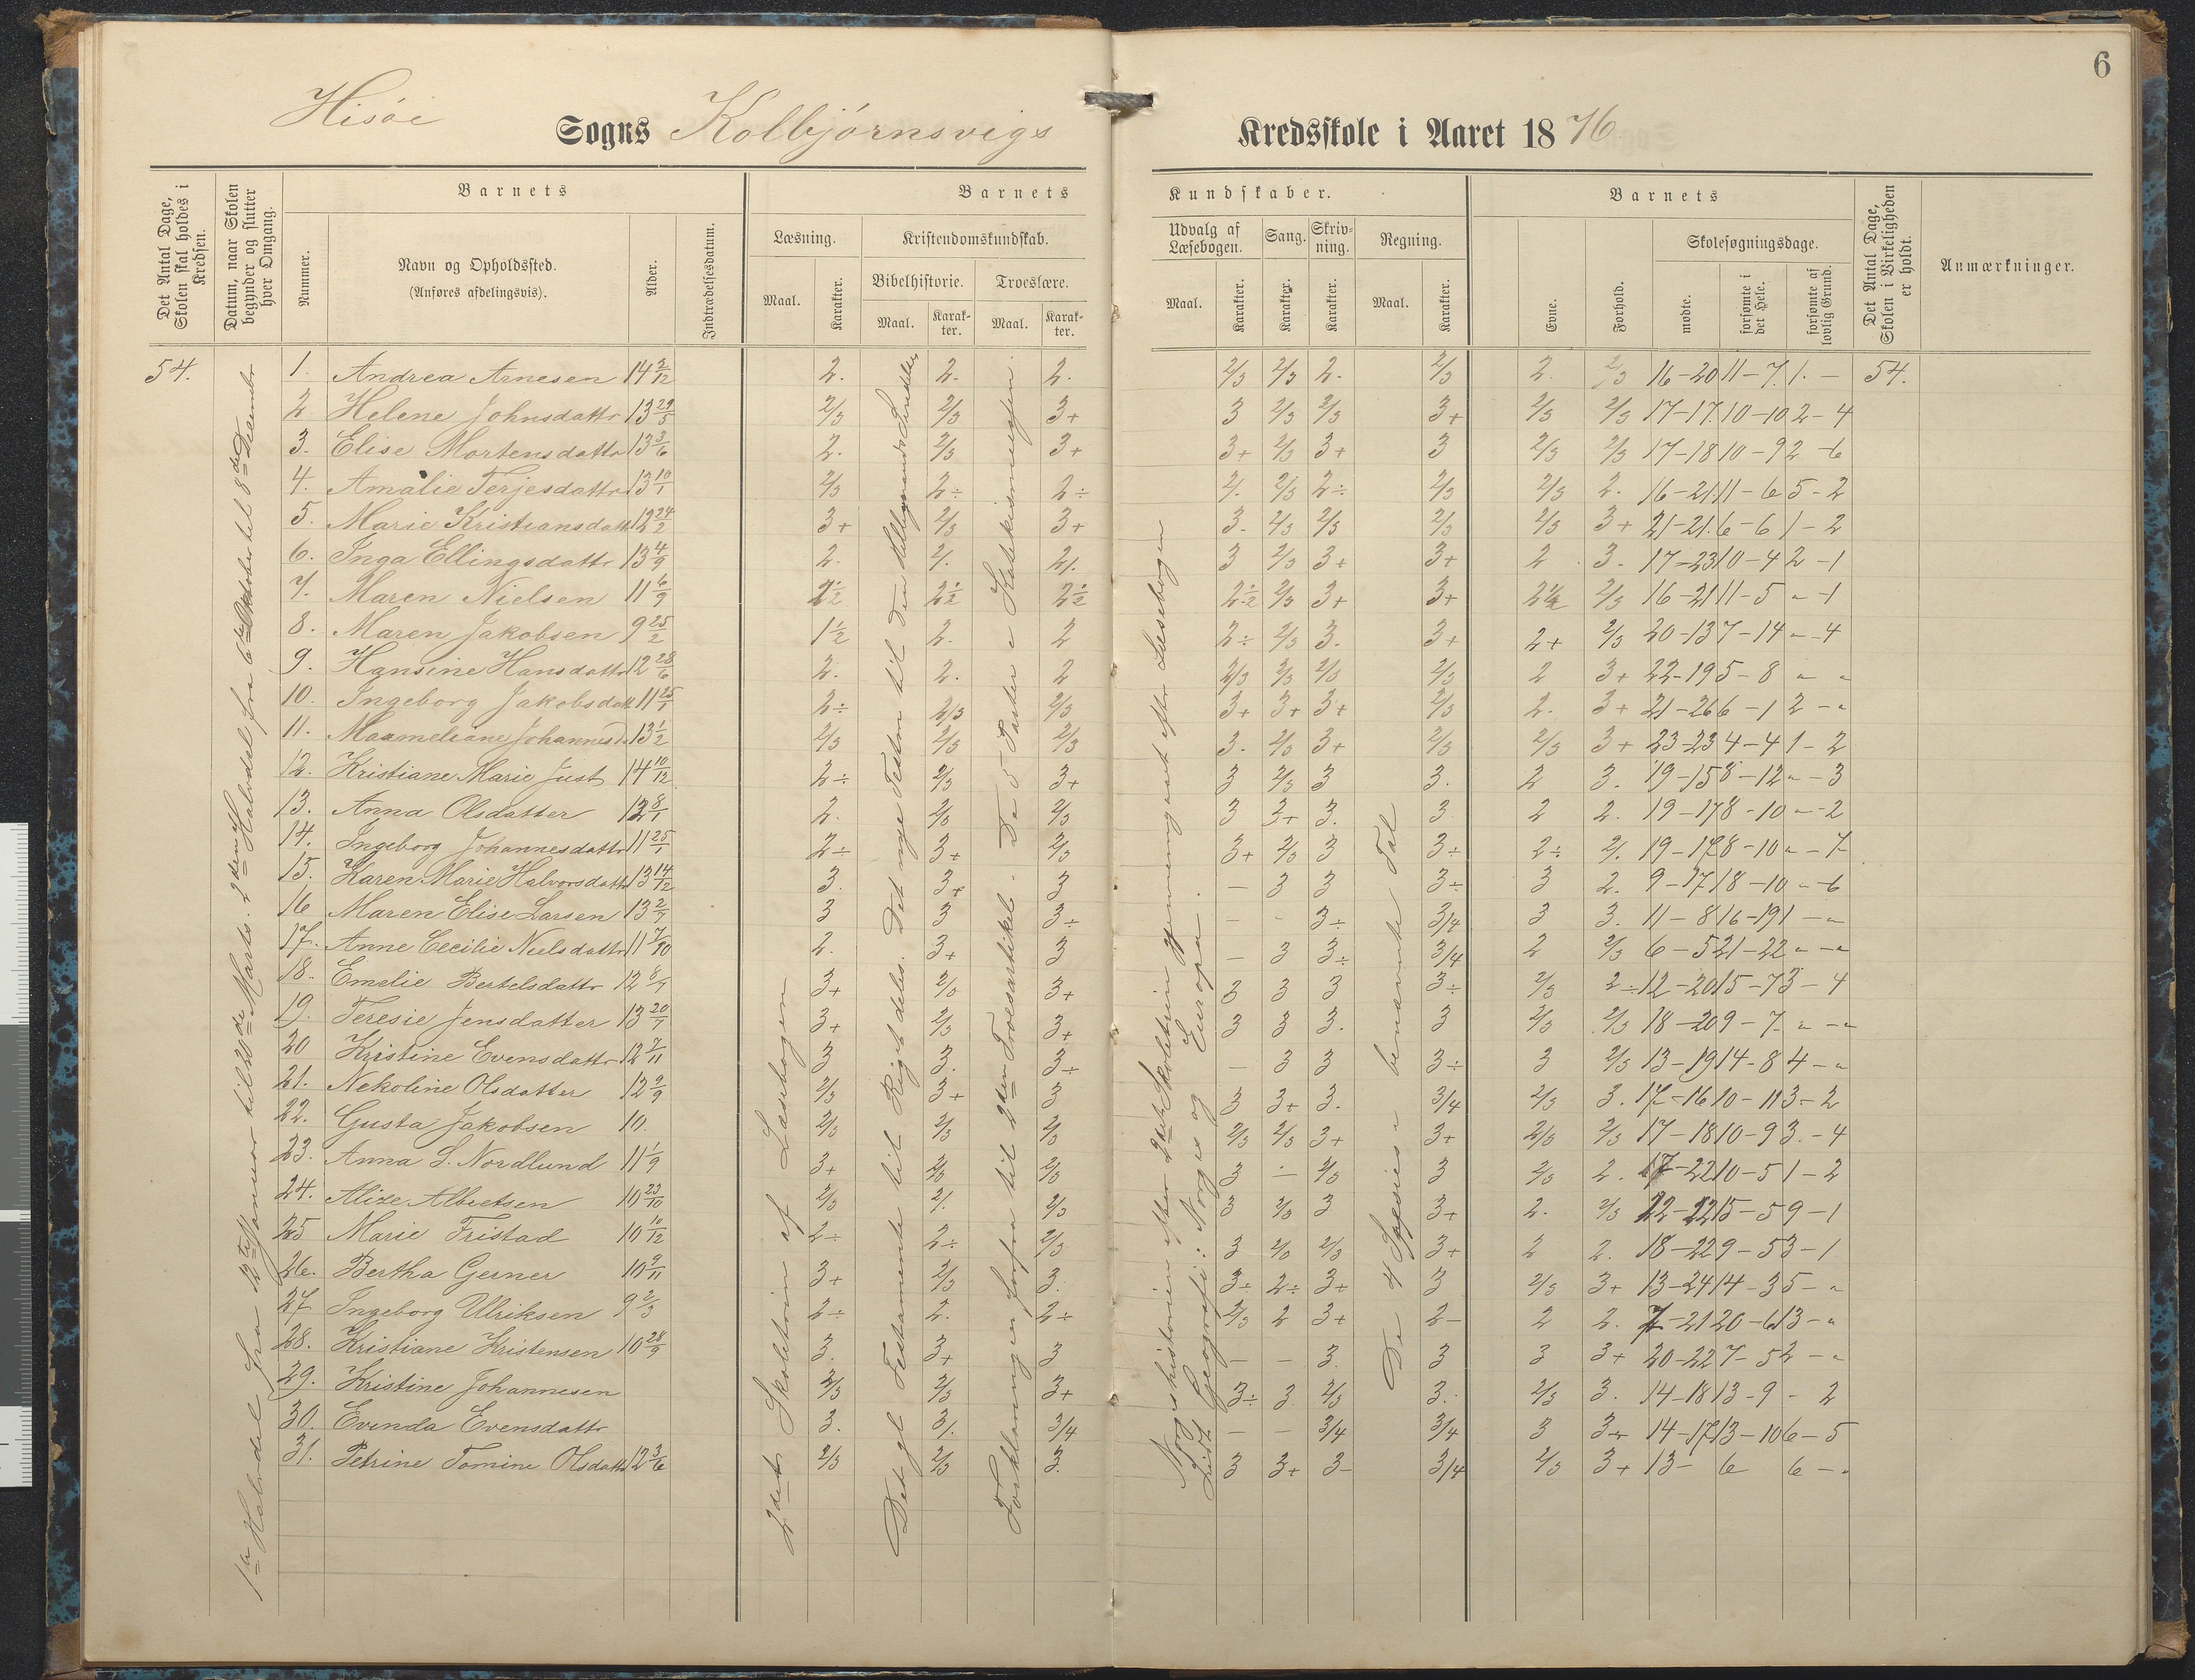 6
Hisøi Sogns Kolbjørnsvigs Kredsskole i Aaret 1876
Det Antal Dage, Skolen skal holdes i Kredsen.
Datum, naar Skolen begynder og slutter hver Omgang.
Barnets
Nummer.
Navn og Opholdssted.
(Anføres afdelingsvis).
Alder.
Indtrædelsesdatum.
Barnets Kundskaber.
Læsning.
Maal.
Karakter.
Kristendomskundskab.
Bibelhistorie.
Maal.
Karakter.
Troeslære.
Maal.
Karakter.
Udvalg af Læsebogen.
Maal.
Karakter.
Sang.
Karakter.
Skrivning.
Karakter.
Regning.
Maal.
Karakter.
Barnets
Evne.
Forhold.
Skolesøgningsdage.
mødte.
forsømte i det Hele.
forsømte af lovlig Grund.
Det Antal Dage, Skolen i Virkeligheden er holdt.
Anmærkninger.
1ste Halvdel fra 12te Januar til 20de Marts. 2den Halvdel fra 6te Oktober til 8de December
2det Skoletrin af Læsebogen
Det gl. Testamente til Rigets deles. Det nye Testm til Den Helligaands Sendelse
Forklaringen forfra til 2den Troesartikel. De 5 Parter i Katekismusen
Norgeshistorien efter 2det Skoletrin gjennemgaaet efter Læsebogen
Lidt Geografi: Norge og Europa.
De 4 Species i benævnte Tal
54. 1. Andrea Arnesen 14 2/12 2. 2. 2. 2/3 2/3 2. 2/3 2. 2/3 16-20 11-7. 1.- 54.
2. Helene Johnsdattr 13 29/5 2/3 2/3 3+ 3 2/3 2/3 3+ 2/3 2/3 17-17. 10-10 2-4
3. Elise Mortensdattr 13 3/6 2. 2/3 3+ 3+ 2/3 3+ 3 2/3 2/3 17-18 10-9 2-6
4. Amalie Terjesdattr 13 10/1 2/3 2÷ 2÷ 2/. 2/3 2÷ 2/3 2/3 2. 16-21. 11-6 5-2
5. Marie Kristiansdattr 12 24/2 3+ 2/3 3+ 3. 2/3 2/3 2/3 2/3 3+ 21-21. 6-6 1-2
6. Inga Ellingsdattr 13 4/9 2. 2/. 2/. 3 2/3 3+ 3+ 2 3. 17-23 10-4 2-1
7. Maren Nielsen 11 6/9 2 1/2 2 1/2 2 1/2 2 1/2 2/3 3+ 3+ 2/3 16-21 11-5 "-1
8. Maren Jakobsen 9 25/2 1 1/2 2. 2 2÷ 2/3 3. 3+ 2+ 2/3 20-13 7-14 "-4
9. Hansine Hansdattr 12 28/6 2. 2. 2 2/3 2/3 2/3 2/3 2 3+ 22-19 5-8 " "
10. Ingeborg Jakobsdatt 11 25/1 2÷ 2/3 2/3 3+ 3+ 3+ 2/3 2. 3+ 21-26 6-1 2-"
11. Johannesd. 13 1/2 2/3 2/3 2/3 3. 2/3 3+ 2/3 2/3 3+ 23-23 4-4 1-2
12. Kristiane Marie Just 14 10/12 2÷ 2/3 3+ 3 2/3 3 3. 2 3. 19-15 8-12 "-3
13. Anna Olsdatter 12 8/1 2. 2/3 2/3 3 3+ 3. 3 2 2. 19-17 8-10 "-2
14. Ingeborg Johannesdattr 11 25/1 2÷ 3+ 2/3 3+ 2/3 3 3÷ 2÷ 2/. 19-17 8-10 "-7
15. Karen Marie Halvorsdattr 13 14/12 3. 3+ 3 - 3 3 3÷ 3 2. 9-17 18-10 "-6
16 Maren Elise Larsen 13 2/7 3 3 3÷ - - 3÷ 3/4 3 3. 11-8 16-19 1-"
17. Anne Cecilie Nielsdattr 11 7/10 2. 3+ 3 - 3 3÷ 3/4 2 2/3 6-5 21-22 "-"
18. Emelie Bertelsdattr 12 8/7 3+ 2/3 3+ 3 3 3 3÷ 2/3 2÷ 12-20 15-7 3-4
19. Teresie Jensdatter 13 20/7 3+ 2/3 3+ 3 3 3. 3 2/3 2/3 18-20 9-7. "-"
20 Kristine Evensdattr 12 7/11 3 3. 3÷ - 3 3 3÷ 3 2/3 13-19 14-8 4-"
21. Nekoline Olsdatter 12 2/9 2/3 3+ 3 3 3+ 3. 3/4 2/3 3. 17-16 10-11 3-2
22. Gusta Jakobsen 10. 2/3 2/3 2/3 2/3 2/3 3+ 3+ 2/3 2/3 17-18 10-9 3.-4
23. Anna S. Nordlund 11 1/9 3+ 2/3 2/3 3 - 2/3 3 2/3 2. 17-22 10-5 1-2
24. Alise Albretsen 10 23/10 2/3 2/. 2/3 3 2/3 3 3+ 2. 2/3 22-22 15-5 9-1
25 Marie Fristad 10 10/12 2÷ 2÷ 2/3 3 2/3 2/3 3+ 2 2. 18-22 9-5 3-1
26. Bertha Gerner 10 9/11 3+ 2/3 3. 3÷ 2÷ 3+ 3 2/3 3+ 13-24 14-3 5-"
27 Ingeborg Ulriksen 9 2/3 2÷ 2. 2÷ 2/3 2 3+ 2- 2 2. 7-21 20-6 13-"
28. Kristiane Kristensen 10 28/9 3. 3+ 3 - - 3. 3 3 3+ 20-22 7-5 2-"
29. Kristine Johannesen 2/3 2/3 3+ 3÷ 3. 2/3 3. 2/3 3. 14-18 13-9 - 2
30. Evinda Evensdattr 3. 3/. 3/4 - - 3/4 3/4 3 3÷ 14-17 13-10 6-5
31. Petrine Tomine Olsdattr 12 3/6 2/3 2/3 3. 3 3+ 3- 3/4 2/3 3+ 13- 6 6-"